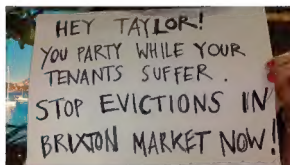 HEY TAYLOR!
YOU PARTY WHILE YOUR
TENANTS SUFFER.
STOP EVICTIONS IN
BRIXTON MARKET NOW!